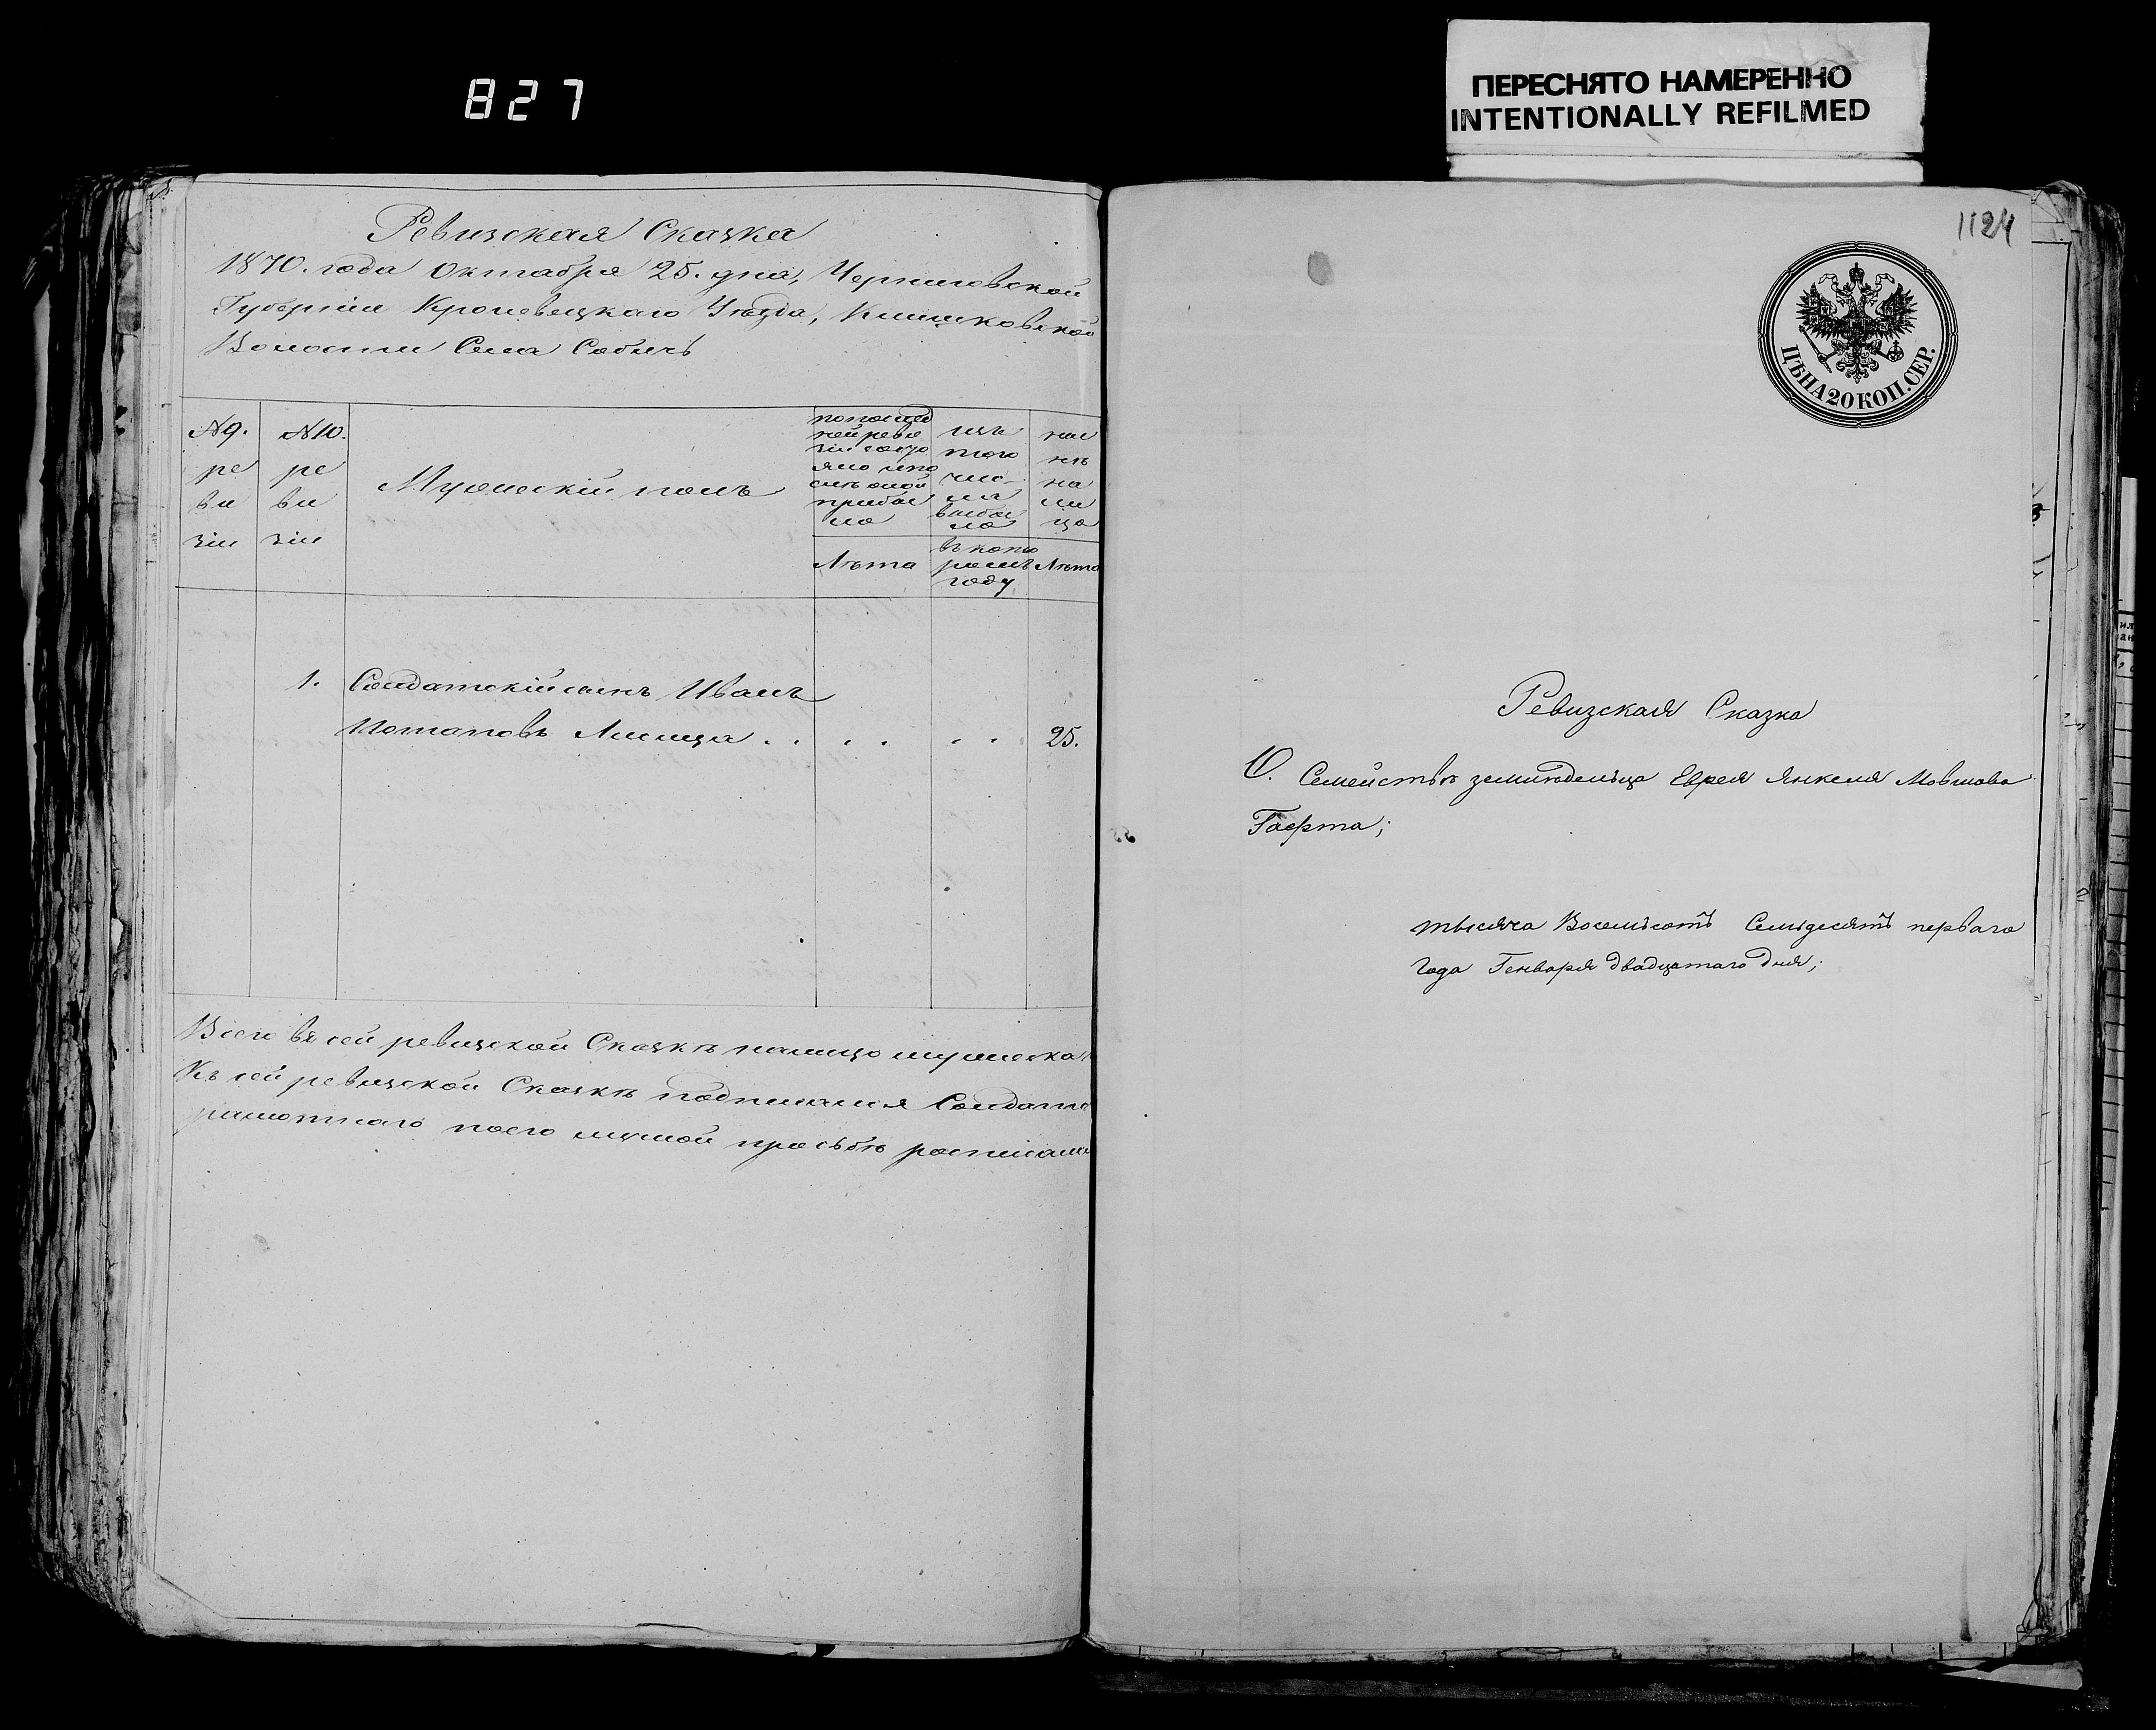 827
ПЕРЕСНЯТО НАМЕРЕННО
INTENTIONALLY REFILMED
Ревизская Сказка
1870. года Октября 25. дня, Черниговской
Губерніи Кролевецкаго Уѣзда, Клишковской
Волости Села Собичъ
№9.
ре
ви
зіи
№10.
ре
ви
зіи
Мужескій полъ
по послѣд
ней реви
зіи состо
яло и по
слѣ оной
прибы
ло
Лѣта
изъ
того
чис-
ла
выбы
ло
въ кото
ромъ
году
ны
нѣ
на
ли
цо
Лѣта
1. Солдатскій сынъ Иванъ
Потаповъ Лисица . . . . . . 25.
Всего въ сей ревизской Сказкѣ налицо мужеска
Къ сей ревизской Сказкѣ подписался Солдатс
грамотнаго по его личной просьбѣ росписался
1124
ЦѢНА 20 КОП. СЕР.
Ревизская Сказка
О. Семействѣ земледѣльца Еврея Янкеля Мовшова
Гаерта;
тысяча Восемьсотъ Семьдесятъ перваго
Года Генваря двадцатаго дня;